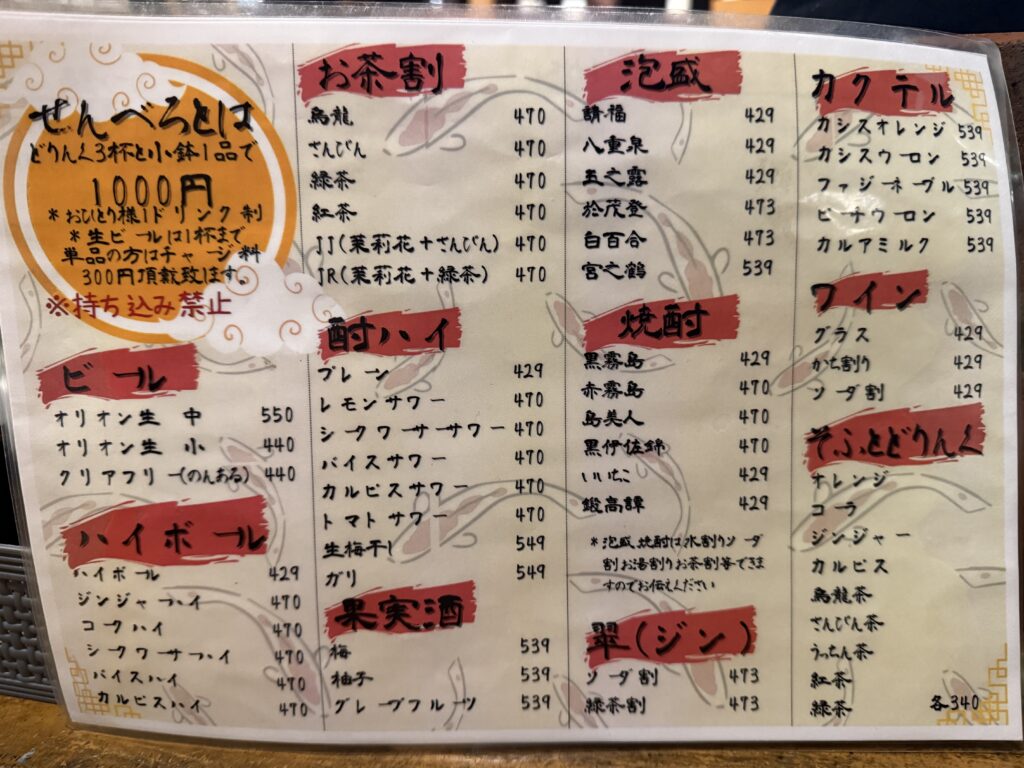 せんべろとは
どりんく3杯と小鉢1品で
1000円
*おひとり様1ドリンク制
*生ビールは1杯まで
単品の方はチャージ料
300円頂戴致します。
※持ち込み禁止
ビール
オリオン生 中 550
オリオン生 小 440
クリアフリー(のんある) 440
ハイボール
ハイボール 429
ジンジャーハイ 470
コークハイ 470
シークワーサーハイ 470
バイスハイ 470
カルピスハイ 470
お茶割
烏龍 470
さんぴん 470
緑茶 470
紅茶 470
JJ(茉莉花+さんぴん) 470
JR(茉莉花+緑茶) 470
酎ハイ
プレーン 429
レモンサワー 470
シークワーサーサワー 470
バイスサワー 470
カルピスサワー 470
トマトサワー 470
生梅干し 549
ガリ 549
果実酒
梅 539
柚子 539
グレープフルーツ 539
泡盛
請福 429
八重泉 429
玉之露 429
於茂登 473
白百合 473
宮之鶴 539
焼酎
黒霧島 429
赤霧島 470
島美人 470
黒伊佐錦 470
いいちこ 429
鍛高譚 429
*泡盛焼酎は水割りソーダ
割お湯割りお茶割等できま
すのでお伝えください
翠(ジン)
ソーダ割 473
緑茶割 473
カクテル
カシスオレンジ 539
カシスウーロン 539
ファジーネーブル 539
ピーチウーロン 539
カルアミルク 539
ワイン
グラス 429
かち割り 429
ソーダ割 429
そふとどりんく
オレンジ
コーラ
ジンジャー
カルピス
烏龍茶
さんぴん茶
うっちん茶
紅茶
緑茶 各340